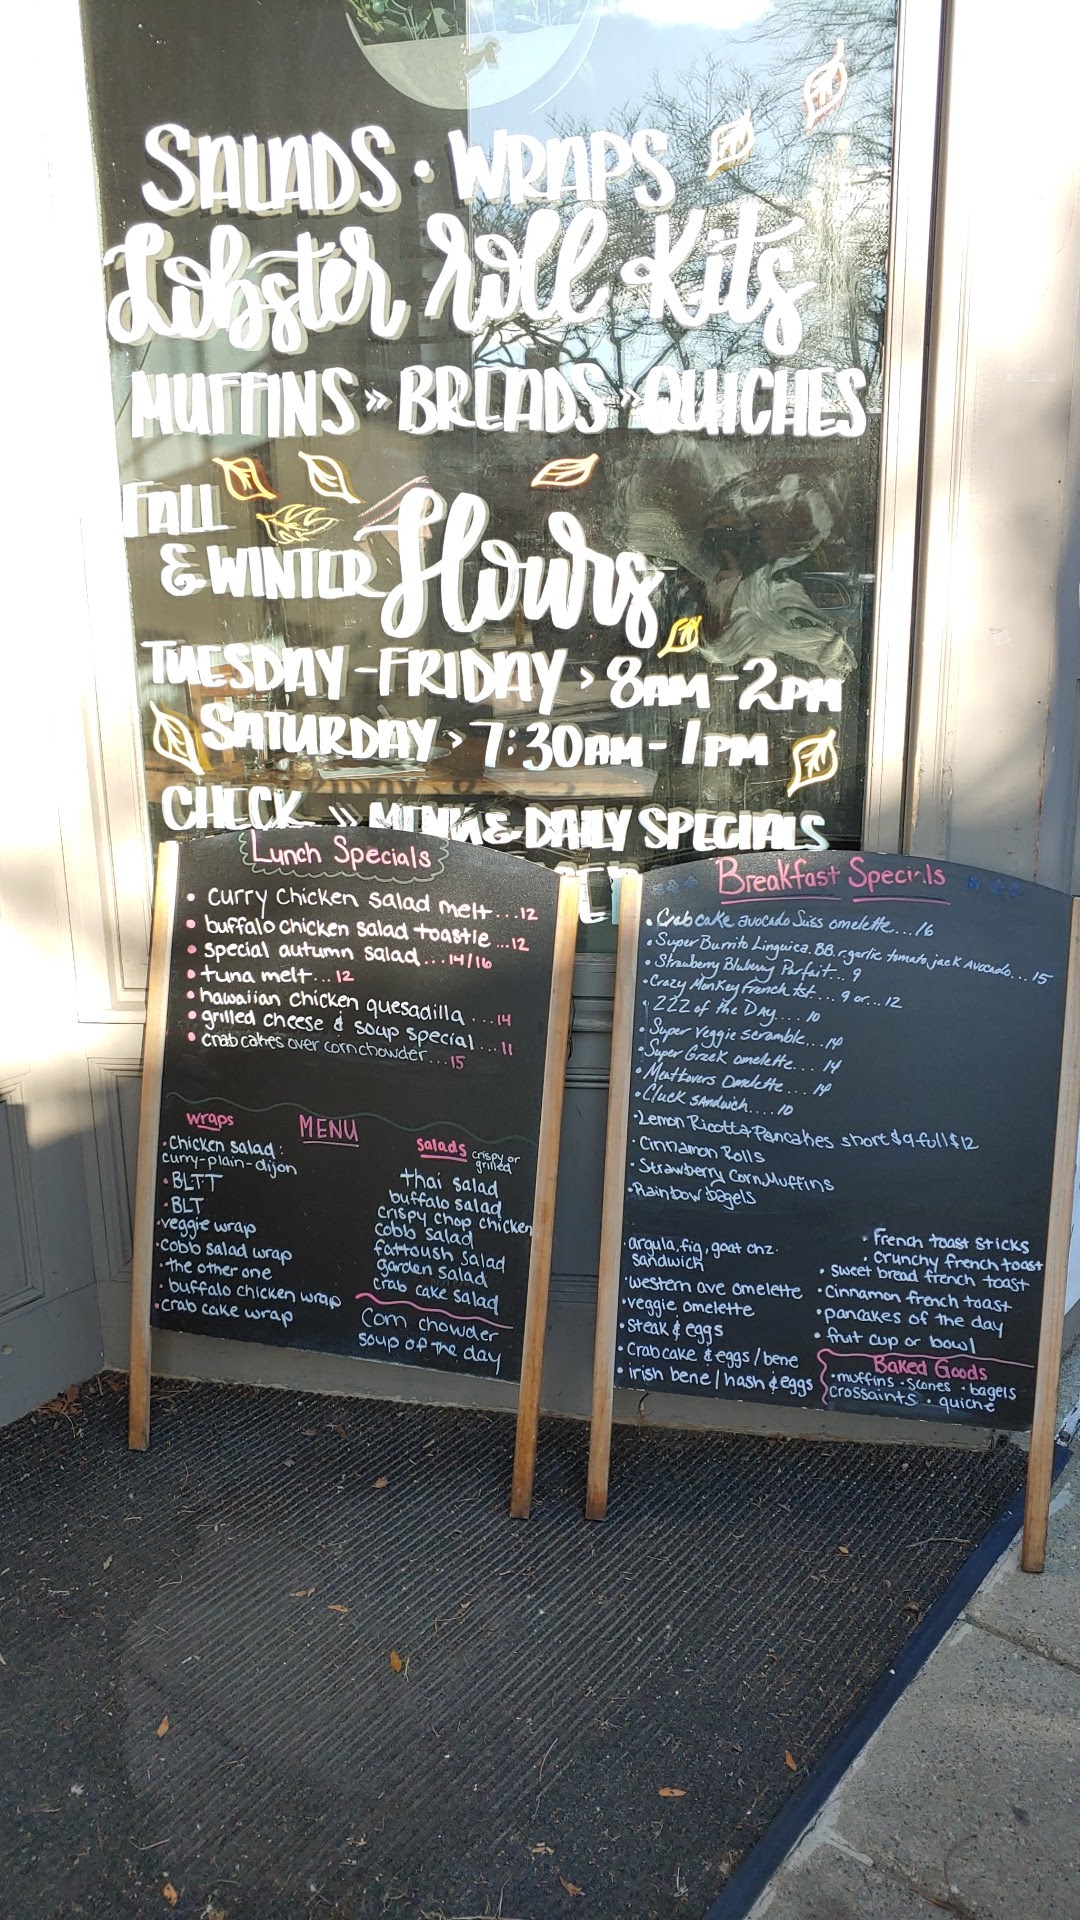 SALADS · WRAPS
Lobster Roll Kits
MUFFINS » BREADS » QUICHES
FALL
& WINTER Hours
TUESDAY - FRIDAY > 8AM - 2PM
SATURDAY > 7:30AM - 1PM
CHECK » MENU & DAILY SPECIALS
Lunch Specials
• curry chicken salad melt...12
• buffalo chicken salad toastie ...12
• special autumn salad...14/16
• tuna melt...12
• hawaiian chicken quesadilla ...14
• grilled cheese & soup special...11
• crab cakes over corn chowder...15
MENU
wraps
• chicken salad:
curry-plain-dijon
• BLTT
• BLT
• veggie wrap
• cobb salad wrap
• the other one
• buffalo chicken wrap
• crab cake wrap
salads crispy or
grilled
thai salad
buffalo salad
crispy chop chicken
cobb salad
fattoush salad
garden salad
crab cake salad
Corn chowder
soup of the day
Breakfast Specials
• Crab cake avocado Suiss omelette...16
• Super Burrito Linguica, BB, r.garlic tomato, jack Avocado...15
• Strawberry Bluberry Parfait... 9
• Crazy Monkey French tst... 9 or...12
• ZZZ of the Day.... 10
• Super Veggie scramble...14
• Super Greek omelette.... 14
• Meatlovers Omelette.... 14
• Cluck sandwich.... 10
• Lemon Ricotta Pancakes short $9 full $12
• Cinnamon Rolls
• Strawberry Corn Muffins
• Rainbow bagels
• argula, fig, goat chz.
sandwich
• western ave omelette
• veggie omelette
• steak & eggs
• crab cake & eggs / bene
• irish bene / hash & eggs
• French toast sticks
• crunchy french toast
• sweet bread french toast
• cinnamon french toast
• pancakes of the day
• fruit cup or bowl
Baked Goods
• muffins • scones • bagels
crossaints • quiche